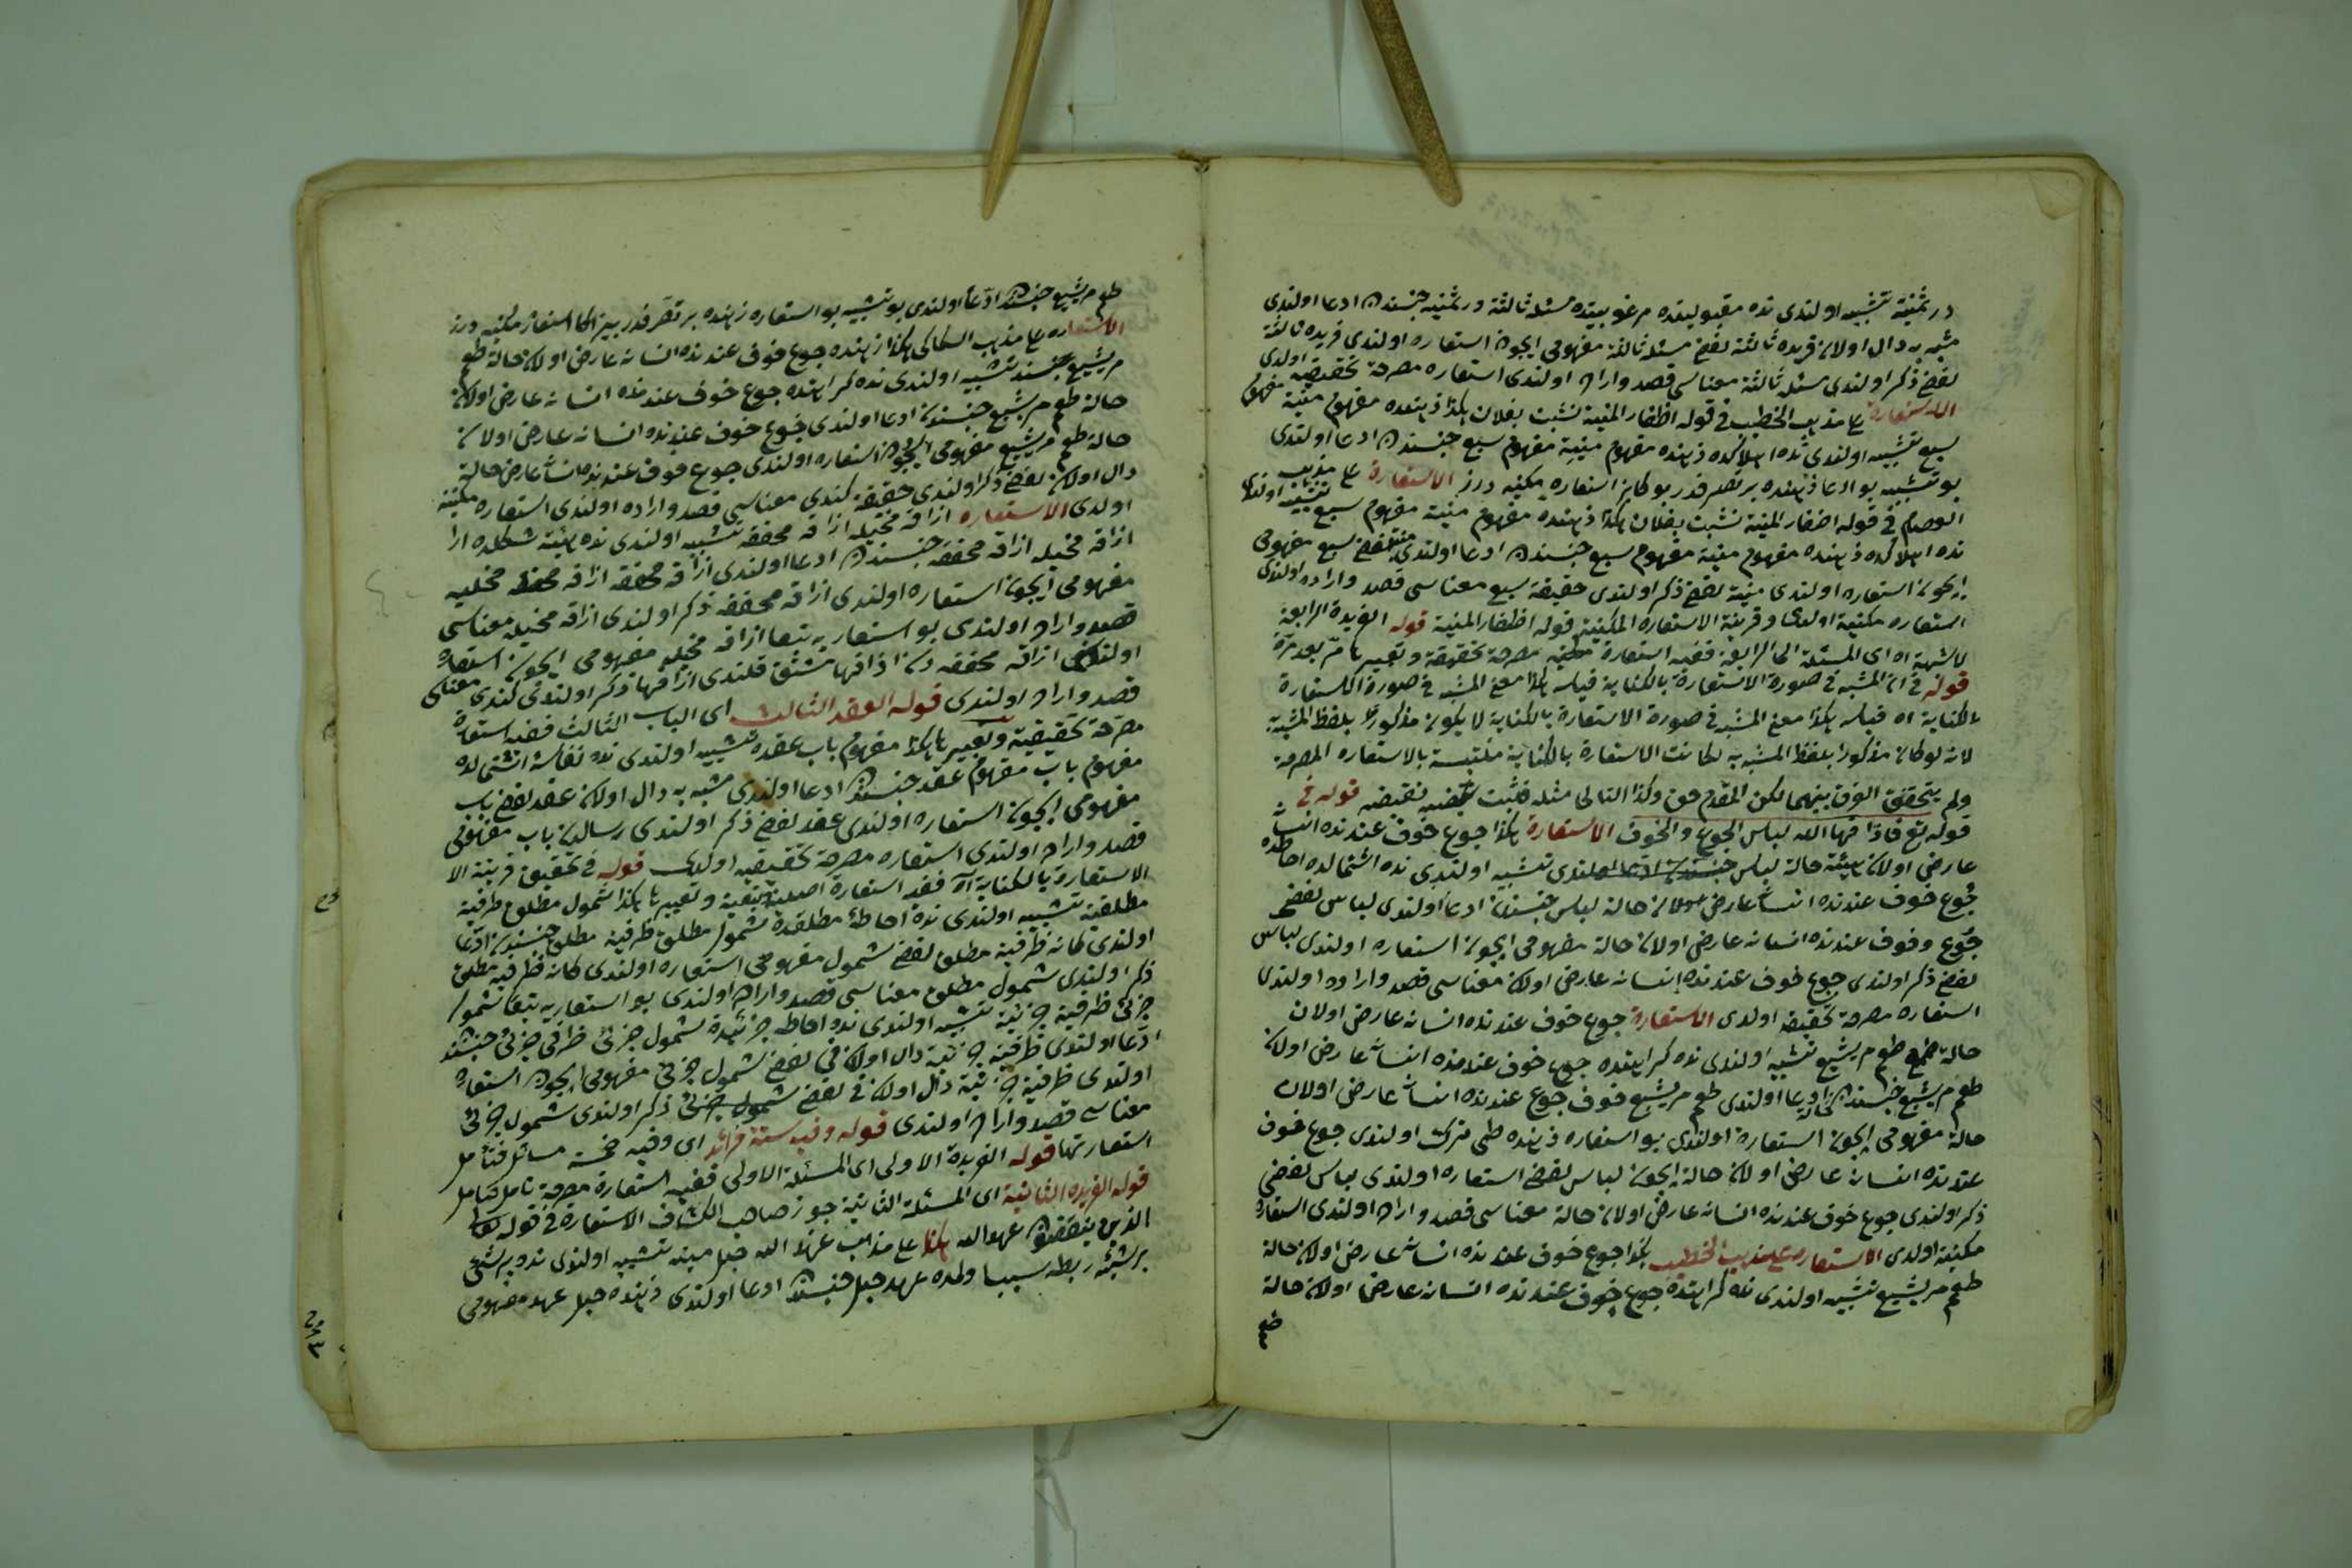 در ثمنیة تشبیه اولندی نده مقبولیتده مرغوبیتده مسئله ثالثة در ثمنیه جنسندن ادعا اولندی
مشبه به دال اولان فریده ثالثة لفظی مسئله ثالثة مفهومی ایچون استعاره اولندی فریده ثالثة
لفظی ذکر اولندی مسئله ثالثة معناسی قصد واراده اولندی استعاره مصرحة تحقیقیه اولدی
الاستعارة علی مذهب الخطیب فی قوله اظفار المنیة نشبت بفلان هکذا ذهنده مفهوم منیة مفهوم
سبع تشبیه اولندی نده اهلاکده ذهنده مفهوم منیة مفهوم سبع جنسندن ادعا اولندی
بو تشبیه بو ادعا ذهنده بر تصر قدر بوکا بز استعاره مکنیه درز الاستعارة علی مذهب
العصام فی قوله اظفار المنیة نشبت بفلان هکذا ذهنده مفهوم منیة مفهوم سبع تشبیه اولندی
نده اهلاکده ذهنده مفهوم منیة مفهوم سبع جنسندن ادعا اولندی منیة لفظی سبع مفهومی
ایچون استعاره اولندی منیة لفظی ذکر اولندی حقیقة سبع معناسی قصد واراده اولندی
استعاره مکنیة اولدی وقرینة الاستعارة المکنیة قوله اظفار المنیة قوله الفریدة الرابعة
لا شبهة اه ای المسئلة الرابعة ففیه استعارة مصرحة تحقیقة وتعبیر نا مر بعد مرة
قوله فی ان المشبه فی صورة الاستعارة بالکنایة قیاسه هکذا معنی المشبه فی صورة الاستعارة
بالکنایة اه قیاسه هکذا معنی المشبه فی صورة الاستعارة بالکنایة لا یکون مذکورا بلفظ المشبه به
لانه لو کان مذکورا بلفظ المشبه به لکانت الاستعارة بالکنایة ملتبسة بالاستعاره المصرحة
ولم یتحقق الفرق بینهما لکن المقدم حق وکذا التالی مثله فثبت نقیضه قوله فی
قوله تع فاذاقها الله لباس الجوع والخوف الاستعارة هکذا جوع خوف عندنده انسانه
عارض اولان هیئة حالة لباس تشبیه اولندی نده اشتمالده احاطه ده
جوع خوف عندنده انسانه عارض اولان حالة لباس جنسندن ادعا اولندی لباس لفظی
جوع وخوف عندنده انسانه عارض اولان حالة مفهومی ایچون استعاره اولندی لباس
لفظی ذکر اولندی جوع خوف عندنده انسانه عارض اولان معناسی قصد واراده اولندی
استعاره مصرحة تحقیقیه اولدی الاستعارة جوع خوف عندنده انسانه عارض اولان
حالة طعم مر بشیع تشبیه اولندی نده کراهتده جوع خوف عندنده انسانه عارض اولان
طعم مر بشیع جنسندن ادعا اولندی طعم مر بشیع خوف جوع عندنده انسانه عارض اولان
حالة مفهومی ایچون استعاره اولندی بو استعاره ذهنده طی ترک اولندی جوع خوف
عندنده انسانه عارض اولان حالة ایچون لباس لفظی استعاره اولندی لباس لفظی
ذکر اولندی جوع خوف عندنده انسانه عارض اولان حالة معناسی قصد واراده اولندی استعاره
مکنیة اولدی الاستعاره علی مذهب الخطیب هکذا جوع خوف عندنده انسانه عارض اولان حالة
طعم مر بشیع تشبیه اولندی نده کراهتده جوع خوف عندنده انسانه عارض اولان حالة
طعم
طعم مر بشیع جنسندن ادعا اولندی بو تشبیه بو استعاره ذهنده بر تصر قدر بز اکا استعاره مکنیه درز
الاستعاره علی مذهب السکاکی هکذا ذهنده جوع خوف عندنده انسانه عارض اولان حالة طعم
مر بشیع تشبیه اولندی نده کراهتده جوع خوف عندنده انسانه عارض اولان
حالة طعم مر بشیع جنسندن ادعا اولندی جوع خوف عندنده انسانه عارض اولان
حالة طعم مر بشیع مفهومی ایچون استعاره اولندی جوع خوف عندنده انسانه عارض حالة
دال اولان لفظی ذکر اولندی حقیقة کندی معناسی قصد واراده اولندی استعاره مکنیة
اولدی الاستعاره اذاقه مخیله اذاقه محققه تشبیه اولندی نده هیئة شکلده
اذاقه مخیله اذاقه محققه جنسندن ادعا اولندی اذاقه محققه اذاقه مخیله
مفهومی ایچون استعاره اولندی اذاقه محققه ذکر اولندی اذاقه مخیله معناسی
قصد واراده اولندی بو استعاریه تبعا اذاقه مخیله مفهومی ایچون استعاره
اولندی اذاقه محققه دن اذاقها مشتق قلندی اذاقها ذکر اولندی کندی معناسی
قصد واراده اولندی قوله العقد الثالث ای الباب الثالث ففیه استعارة
مصرحة تحقیقیة وتعبیر نا هکذا مفهوم باب عقده تشبیه اولندی نده نفاسة اشتمالده
مفهوم باب مفهوم عقد جنسندن ادعا اولندی مشبه به دال اولان عقد لفظی باب
مفهومی ایچون استعاره اولندی عقد لفظی ذکر اولندی رساله ده باب مفهومی
قصد واراده اولندی استعاره مصرحة تحقیقیه اولدی قوله فی تحقیق قرینة الا
الاستعارة بالکنایة اه ففیه استعارة تبعیة وتعبیر نا هکذا شمول مطلق ظرفیة
مطلقیة تشبیه اولندی نده احاطهٔ مطلقده شمول مطلق ظرفیة مطلق جنسندن ادعا
اولندی کانه ظرفیة مطلق لفظی شمول مفهومی استعاره اولندی کانه ظرفیه مطلق
ذکر اولندی شمول مطلق معناسی قصد واراده اولندی بو استعاریه تبعا شمول
جزئی ظرفیة جزئیة تشبیه اولندی نده احاطه جزئیده شمول جزئی ظرفی جزئی جنسندن
ادعا اولندی ظرفیة جزئیة دال اولان فی لفظی شمول جزئی مفهومی ایچون استعاره
اولندی ظرفیة جزئیة دال اولان فی لفظی ذکر اولندی شمول جزئی
معناسی قصد واراده اولندی قوله وفیه ستة فرائد ای وفیه خمسة مسائل فتأمل
استعارتها قوله الفریدة الاولی ای المسئلة الاولی ففیه استعارة مصرحة تامل فتامل
قوله الفریده الثانیة ای المسئلة الثانیة جوز صاحب الکشاف الاستعارة فی قوله تعالی
الذین ینقضون عهد الله هکذا علی مذهب عهد الله حبل مینه تشبیه اولندی نده بر شئ
بر شیئه ربطه سبب اولمده عهد حبل جنسندن ادعا اولندی ذهنده حبل عهد مفهومی